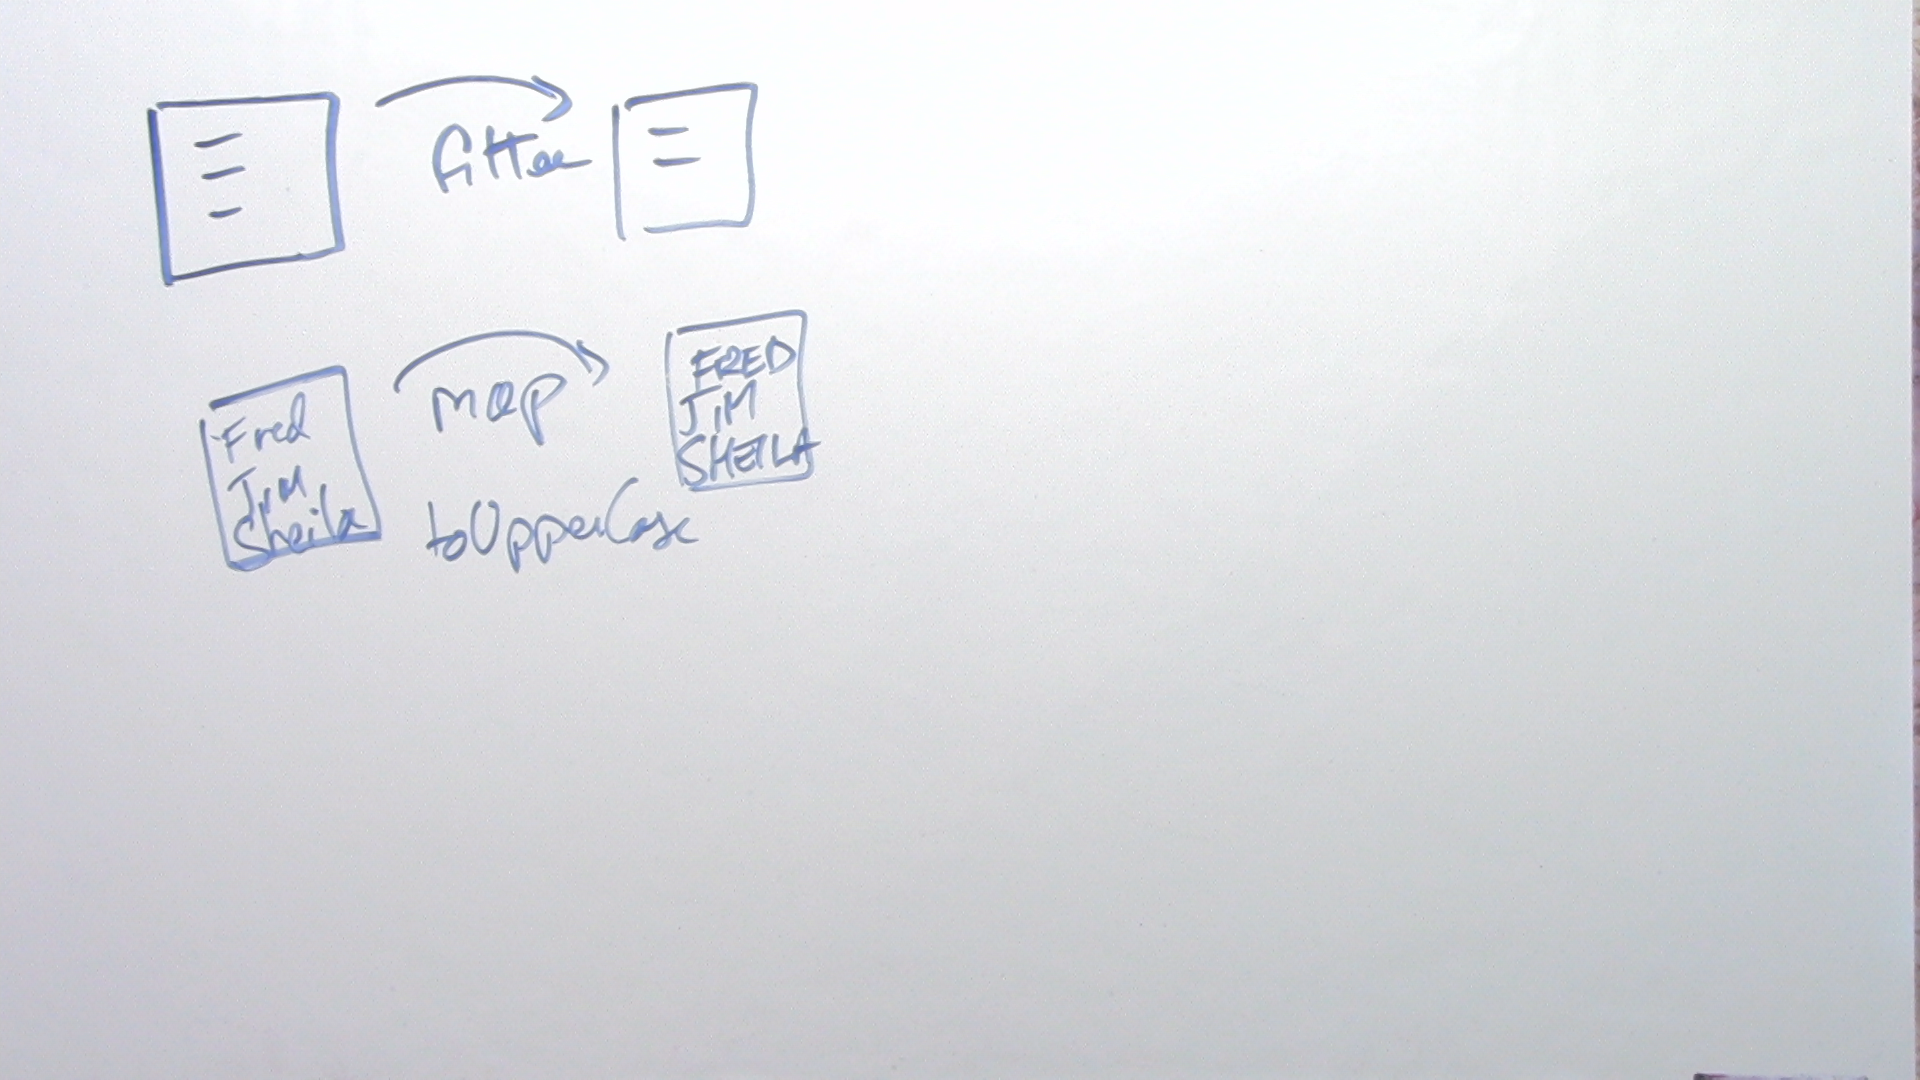 filter
Fred
Jim
Sheila
map
toUpperCase
FRED
JIM
SHEILA